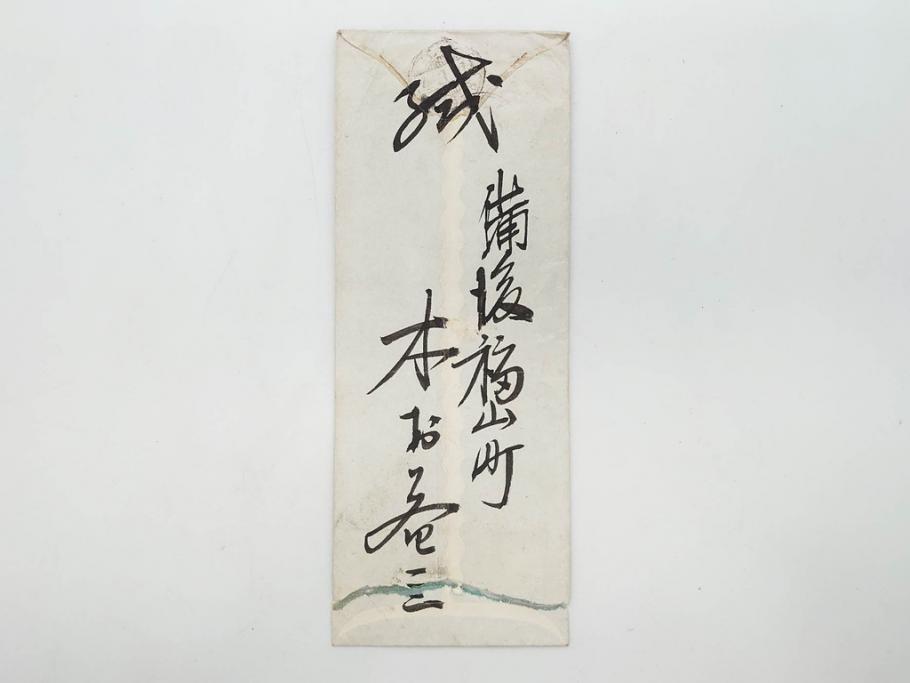 緘
備後福山町
木
三